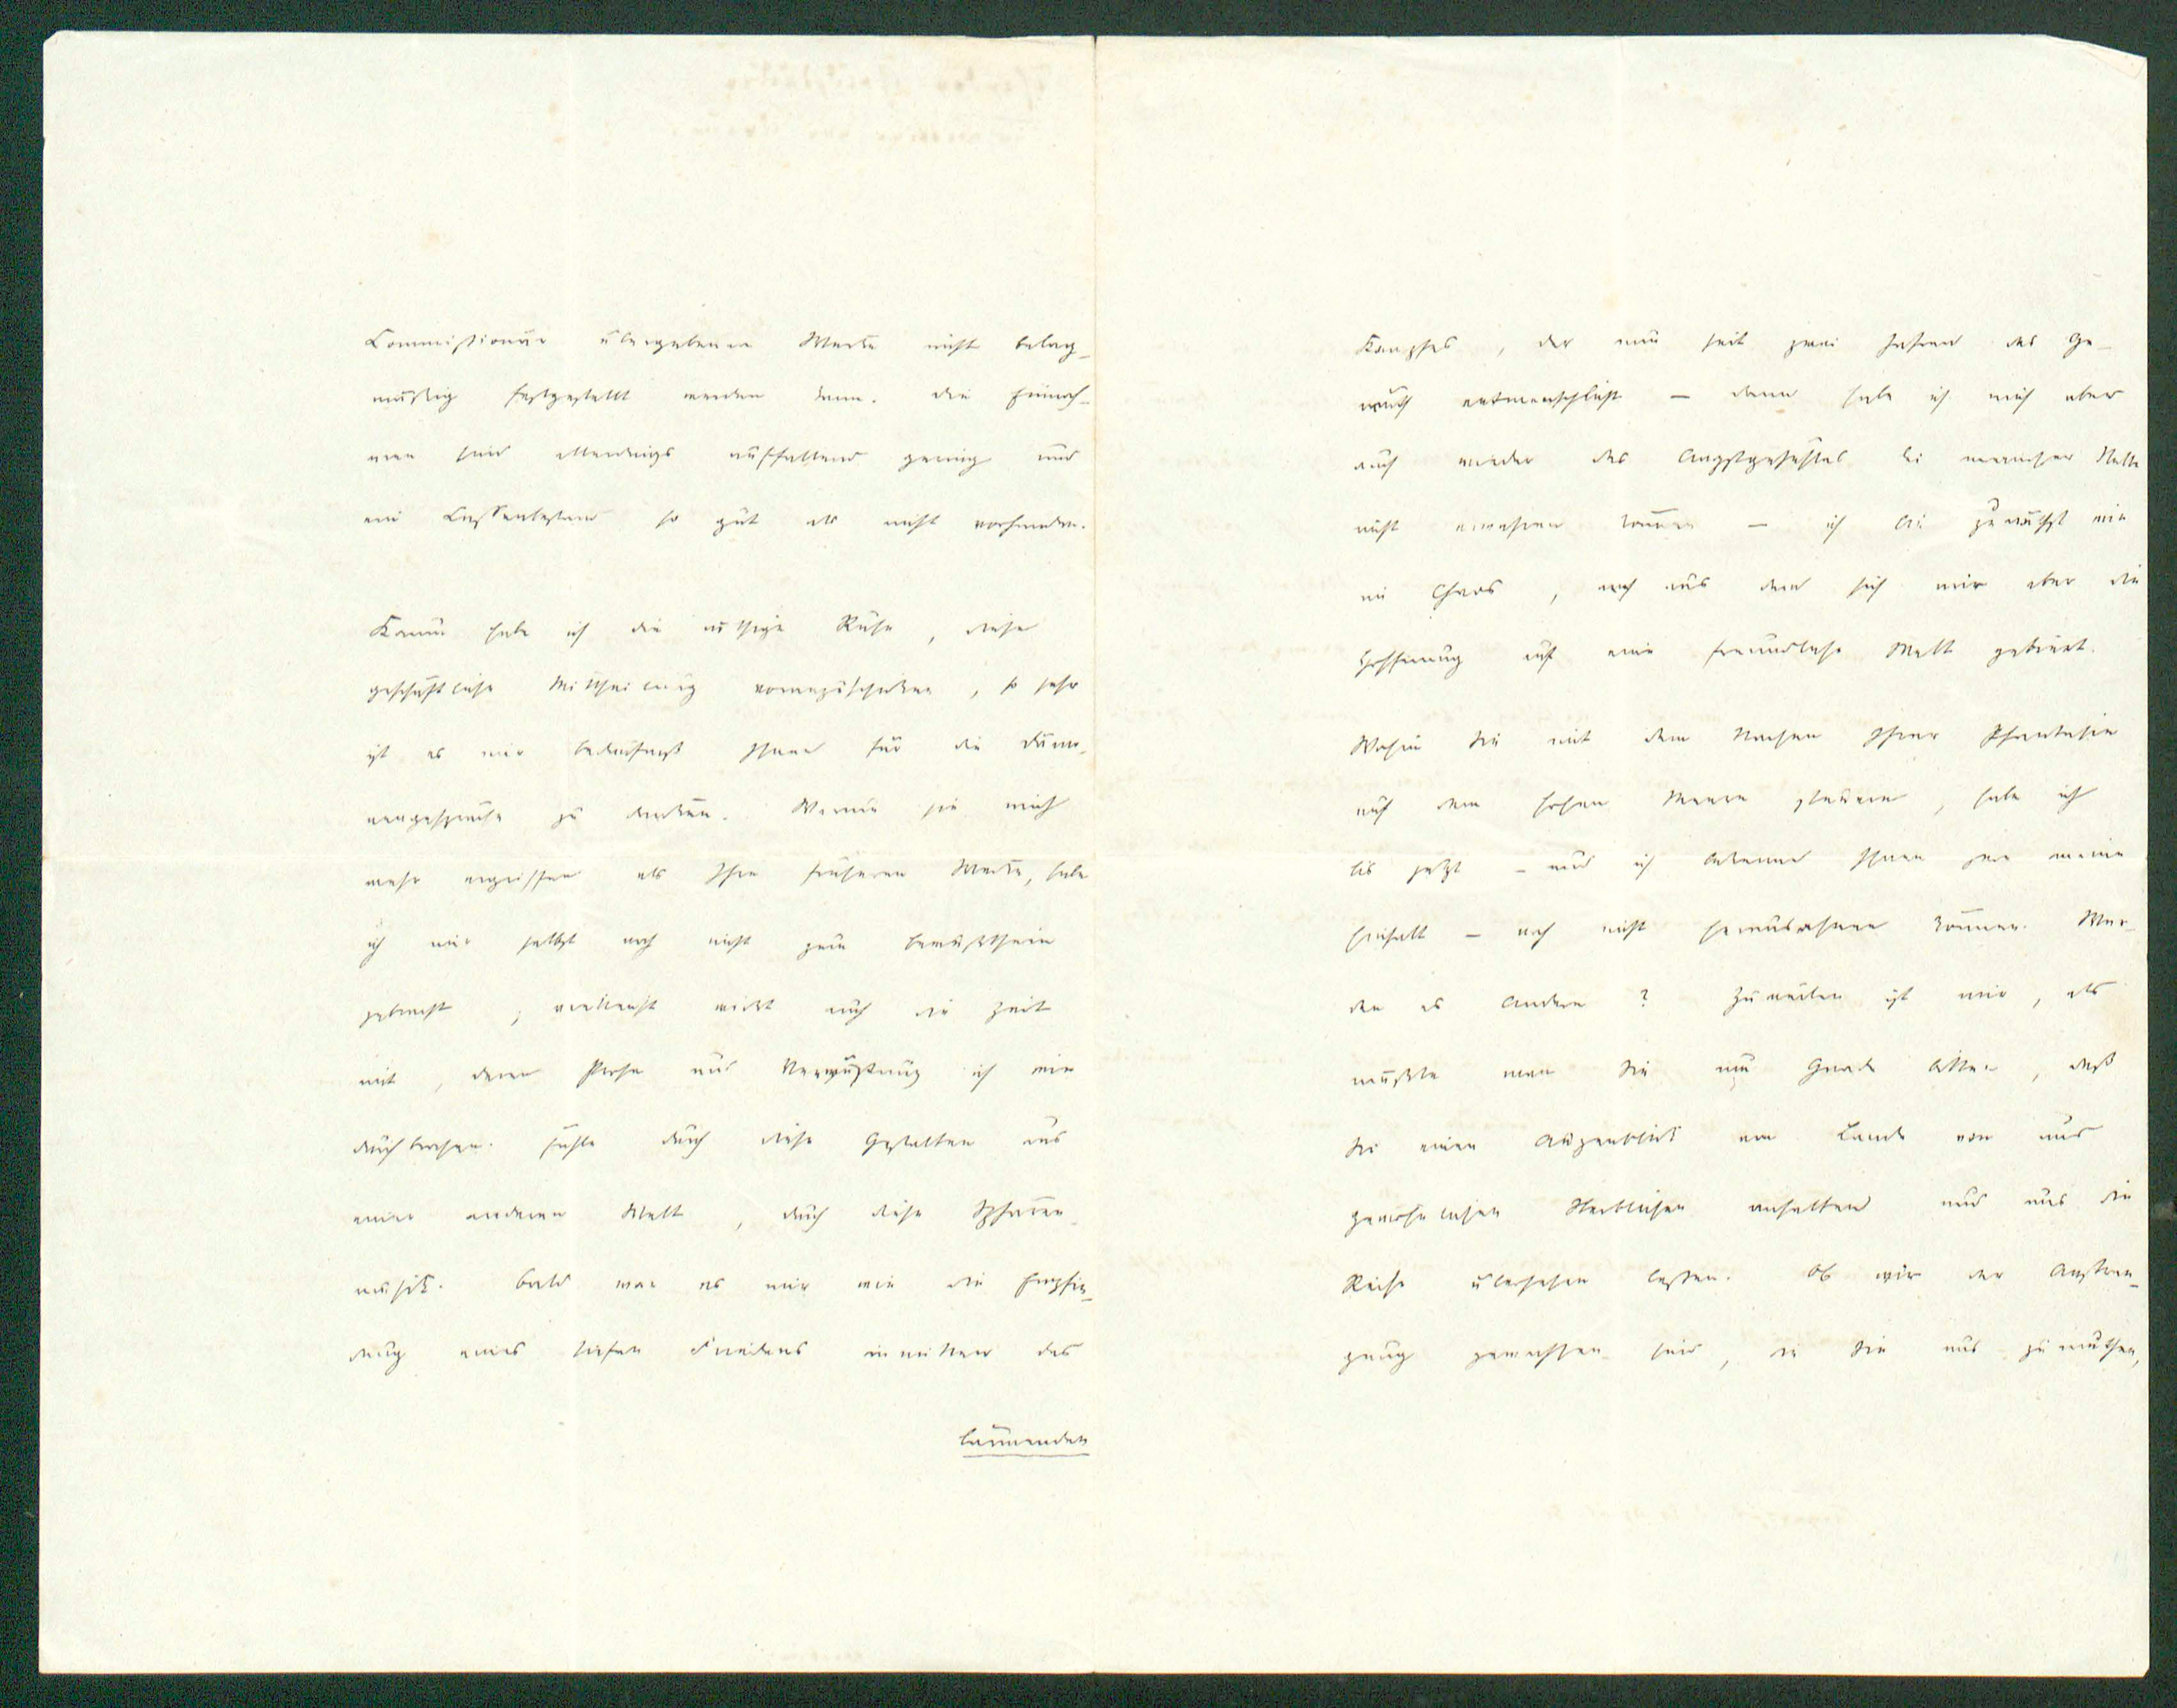 Commissionär übergebenen Werke nicht beleg-
mäßig festgestellt werden kann. Die Einnah-
men sind allerdings auffallend gering und
ein Cassenbestand so gut als nicht vorhanden.
Kaum habe ich die nöthige Ruhe, diese
geschäftliche Mittheilung vorauszuschicken, so sehr
ist es mir Bedürfniß Ihnen für die Dämo-
nengespräche zu danken. Warum sie mich
mehr ergriffen als Ihre früheren Werke, habe
ich mir selbst noch nicht zum Bewußtsein
gebracht; vielleicht wirkt auch die Zeit
mit, deren Prosa und Verwüstung ich wie
durchbrochen fühle durch diese Gestalten aus
einer anderen Welt, durch diese Sphären-
musik. Bald war es mir wie die Empfin-
dung eines tiefen Friedens inmitten des
lärmenden
Kampfes, der nun seit zwei Jahren das Ge-
müth entmenschlicht – dann habe ich mich aber
auch wieder des Angstgefühles bei mancher Stelle
nicht erwehren können – ich bin zunächst wie
im Chaos, noch aus dem sich mir aber die
Hoffnung auf eine freundliche Welt gebiert.
Wohin Sie mit dem Nachen Ihrer Phantasie
auf dem hohen Meere steuern, habe ich
bis jetzt – und ich bekenne Ihnen gern meine
Einfalt – noch nicht herausahnen können. Wer-
den es Andere? Zuweilen ist mir, als
müßte man Sie um Gnade bitten, daß
Sie einen Augenblick am Lande von uns
gewöhnlichen Sterblichen anhalten und uns die
Reise übersehen lassen. Ob wir der Anstren-
gung gewachsen sind, die Sie uns zumuthen,